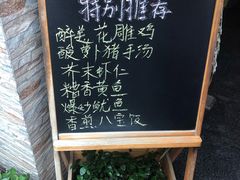 特别推荐
醉美花雕鸡
酸萝卜猪手汤
芥末虾仁
糟香黄鱼
爆炒鱿鱼
香煎八宝饭